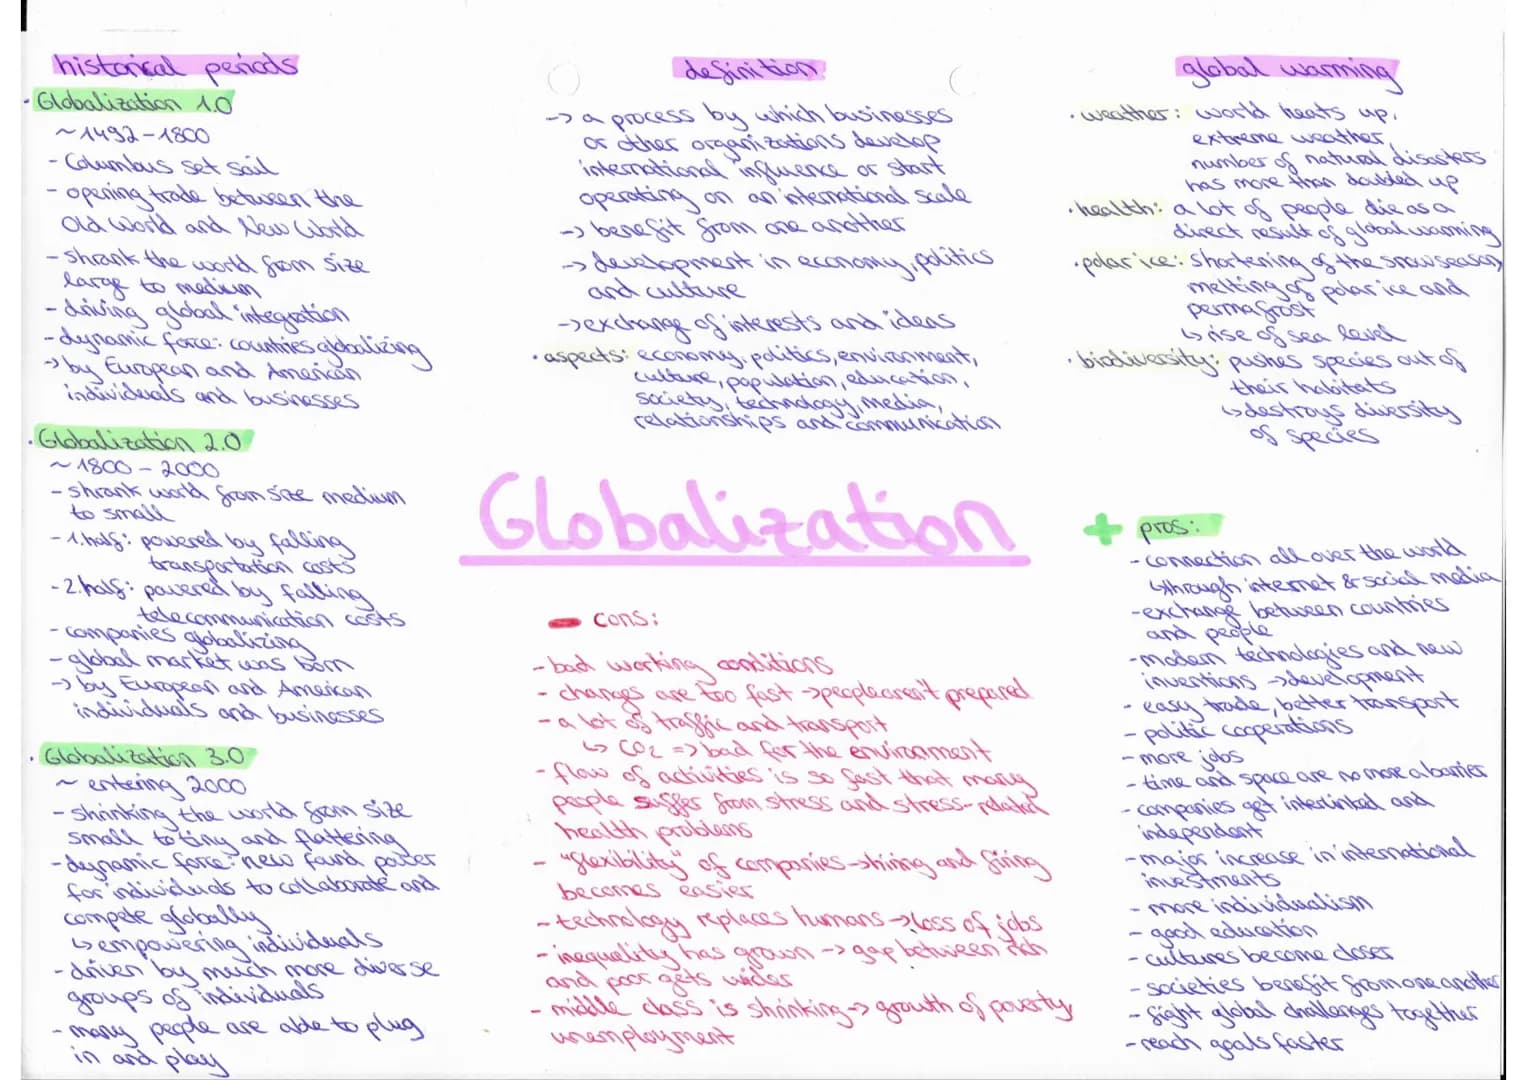 historical periods
· Globalization 1.0
~1492-1800
- Columbus set sail
- opening trade between the
Old World and New World
- shrank the world from size
large to medium
- driving global integration
- dynamic force: countries globalizing
-> by European and American
individuals and businesses
· Globalization 2.0
~ 1800 - 2000
- shrank world from size medium
to small
- 1.half: powered by falling
transportation costs
- 2.half: powered by falling
telecommunication costs
- companies globalizing
- global market was born
-> by European and American
individuals and businesses
· Globalization 3.0
~ entering 2000
- shrinking the world from size
small to tiny and flattering
- dynamic force: new found power
for individuals to collaborate and
compete globally
↳ empowering individuals
- driven by much more diverse
groups of individuals
- many people are able to plug
in and play
definition
-> a process by which businesses
or other organizations develop
international influence or start
operating on an international scale
-> benefit from one another
-> development in economy, politics
and culture
-> exchange of interests and ideas
· aspects: economy, politics, environment,
culture, population, education,
society, technology, media,
relationships and communication
Globalization
- cons:
- bad working conditions
- changes are too fast -> people aren't prepared
- a lot of traffic and transport
↳ CO₂ => bad for the environment
- flow of activities is so fast that many
people suffer from stress and stress-related
health problems
- "flexibility" of companies -> hiring and firing
becomes easier
- technology replaces humans -> loss of jobs
- inequality has grown -> gap between rich
and poor gets wider
- middle class is shrinking -> growth of poverty,
unemployment
global warming
· weather: world heats up,
extreme weather,
number of natural disasters
has more than doubled up
· health: a lot of people die as a
direct result of global warming
· polar ice: shortening of the snow season,
melting of polar ice and
permafrost
↳ rise of sea level
· biodiversity: pushes species out of
their habitats
↳ destroys diversity
of species
+ pros:
- connection all over the world
↳ through internet & social media
- exchange between countries
and people
- modern technologies and new
inventions -> development
- easy trade, better transport
- politic cooperations
- more jobs
- time and space are no more a barrier
- companies get interlinked and
independent
- major increase in international
investments
- more individualism
- good education
- cultures become closer
- societies benefit from one another
- fight global challenges together
- reach goals faster